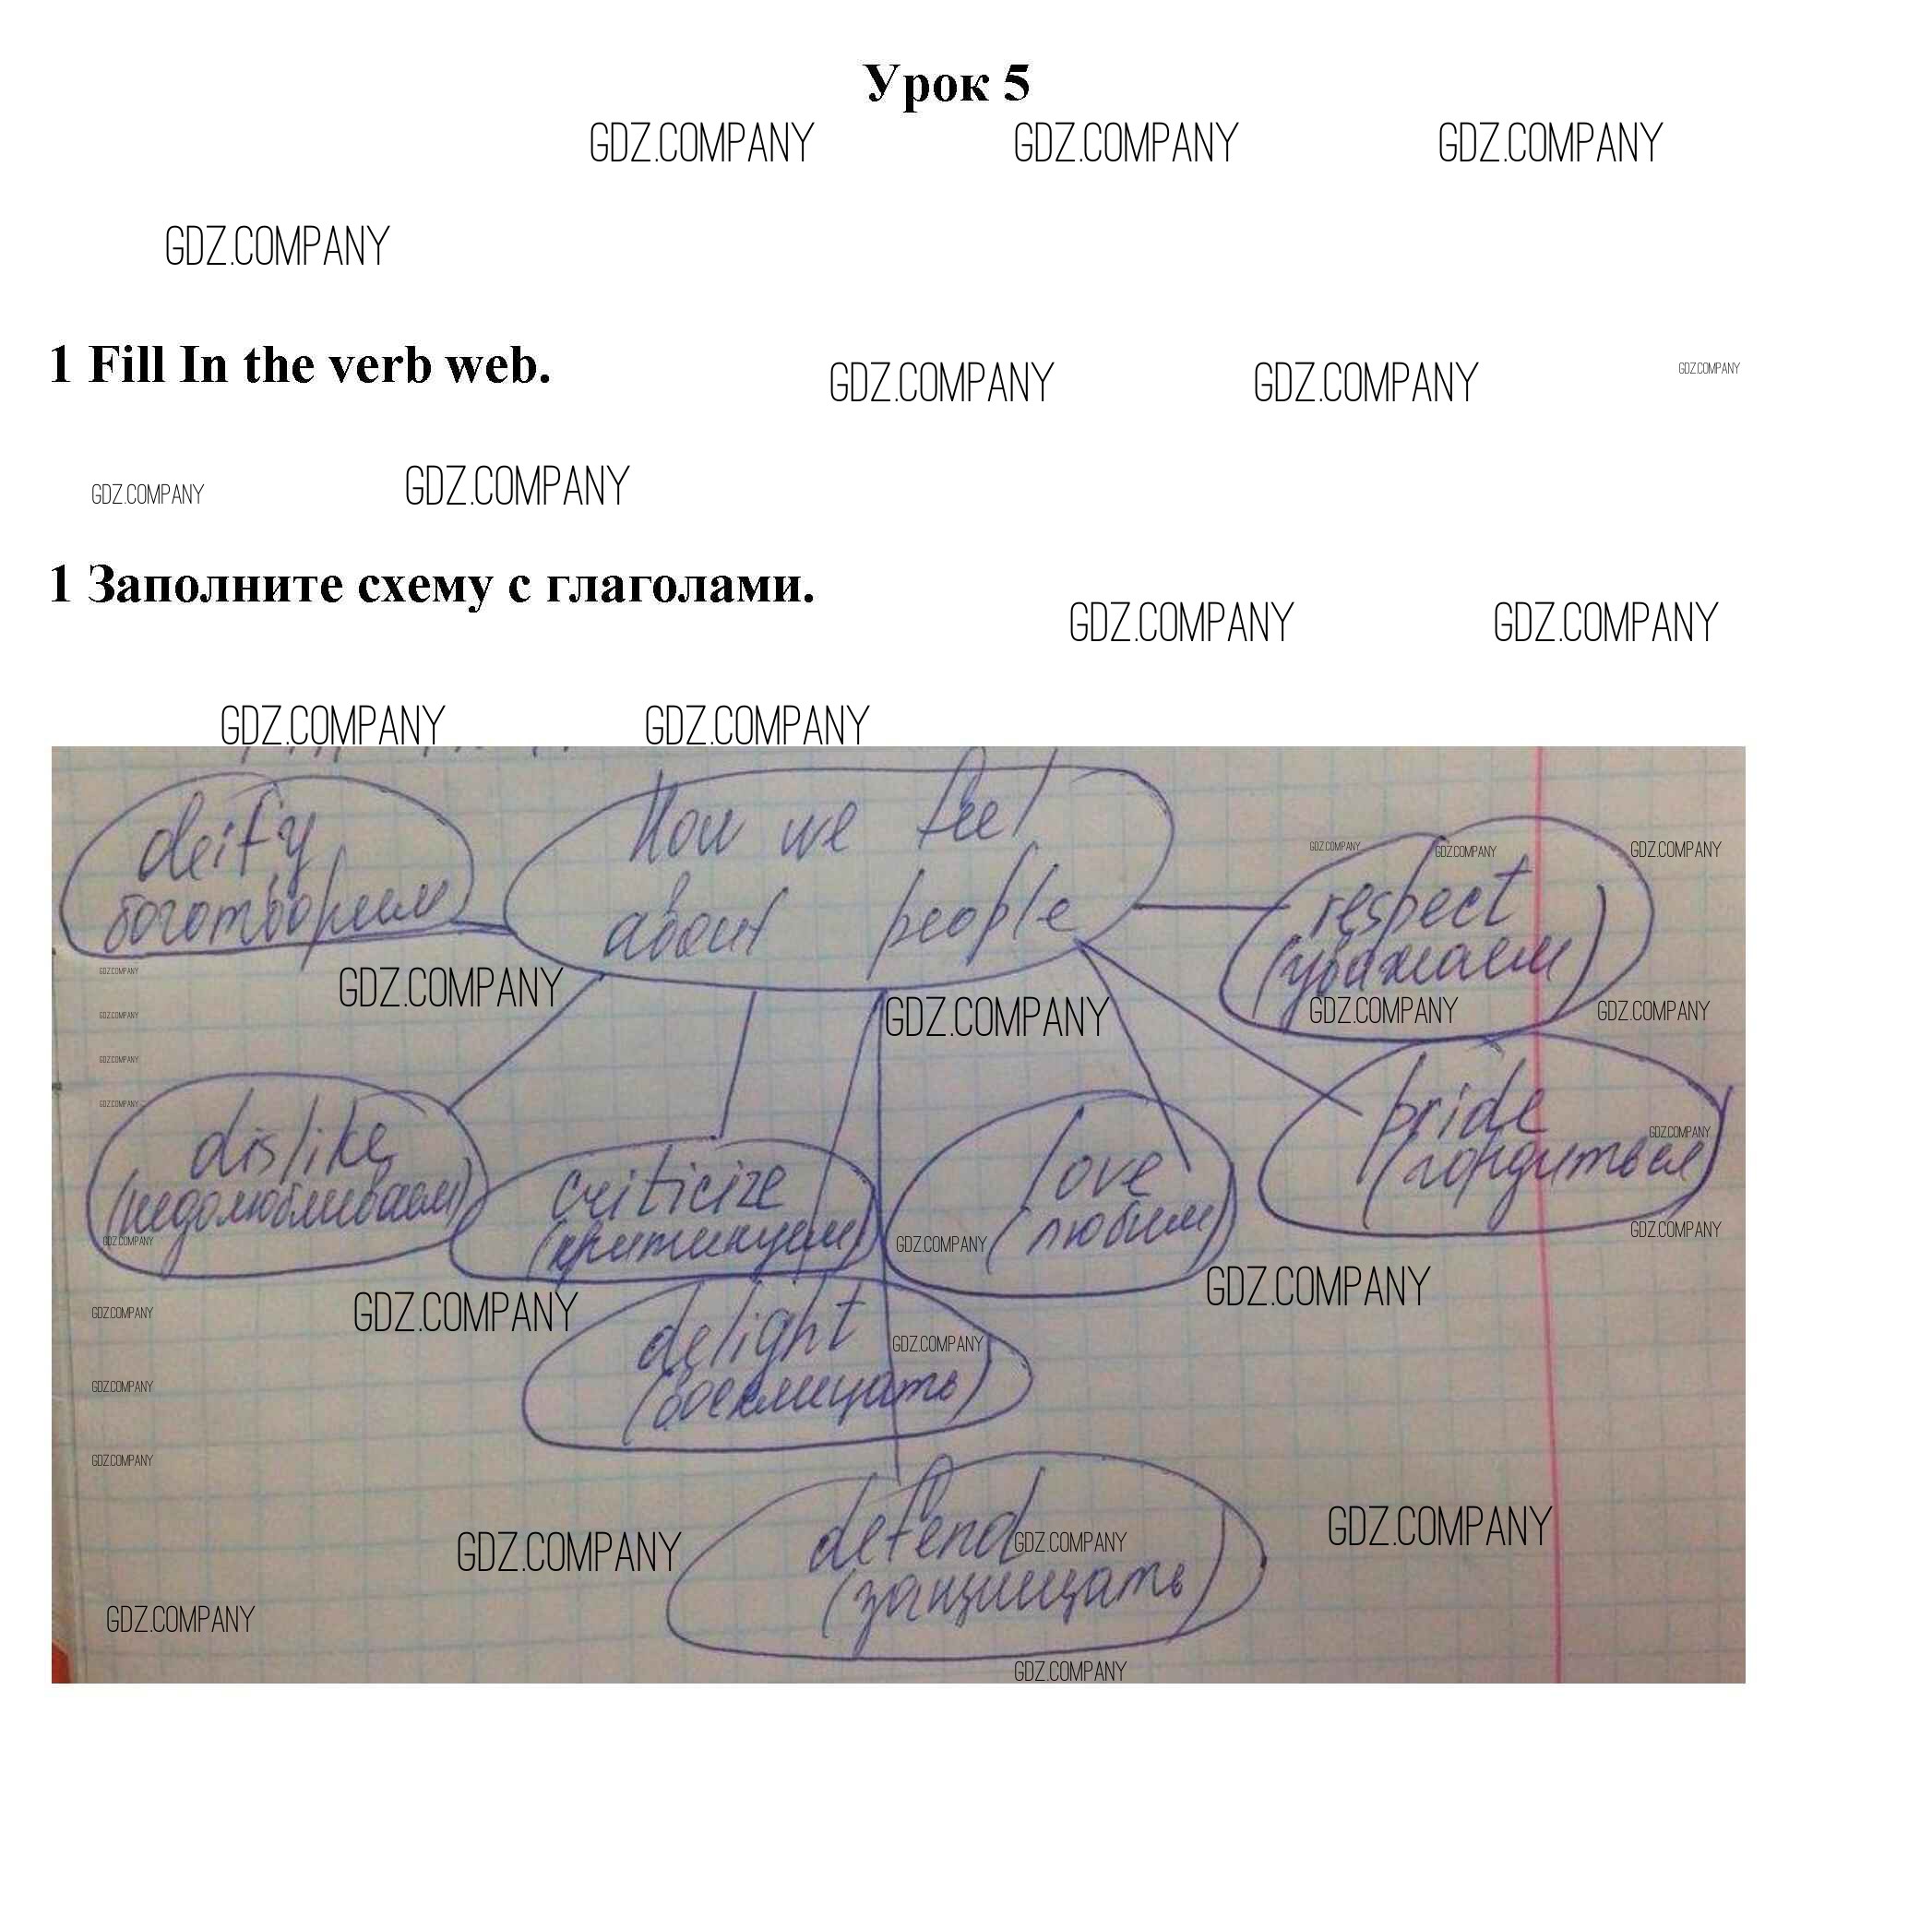 Урок 5
GDZ.COMPANY GDZ.COMPANY GDZ.COMPANY
GDZ.COMPANY
1 Fill In the verb web.
GDZ.COMPANY GDZ.COMPANY GDZ.COMPANY
GDZ.COMPANY GDZ.COMPANY
1 Заполните схему с глаголами.
GDZ.COMPANY GDZ.COMPANY
GDZ.COMPANY GDZ.COMPANY
How we feel
about people
deify
боготворим
GDZ.COMPANY GDZ.COMPANY GDZ.COMPANY
respect
(уважаем)
GDZ.COMPANY GDZ.COMPANY
GDZ.COMPANY
GDZ.COMPANY GDZ.COMPANY
GDZ.COMPANY
GDZ.COMPANY
GDZ.COMPANY
dislike
(недолюбливаем)
GDZ.COMPANY
criticize
(критикуем)
love
(любим)
GDZ.COMPANY
bride
GDZ.COMPANY
(гордиться)
GDZ.COMPANY
GDZ.COMPANY GDZ.COMPANY GDZ.COMPANY
delight
GDZ.COMPANY
(восклицать)
GDZ.COMPANY
GDZ.COMPANY
defend
GDZ.COMPANY GDZ.COMPANY GDZ.COMPANY
(защищать)
GDZ.COMPANY
GDZ.COMPANY